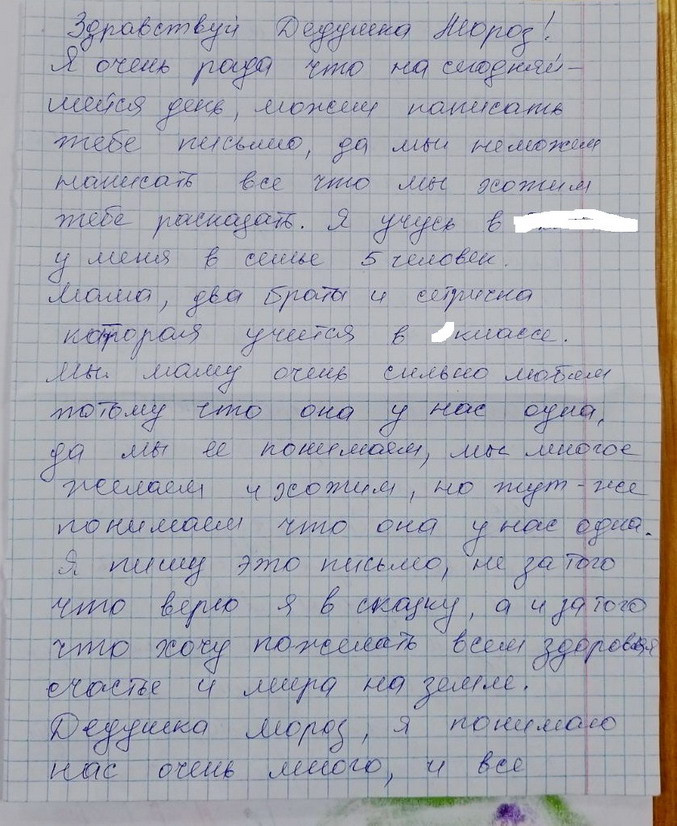 Здравствуй Дедушка Мороз!
Я очень рада что на сиодняй-
шейся день, можем написать
тебе письмо, да мы неможем
написать все что мы хожим
тебе расказать. Я учусь в
у меня в семье 5 человек.
Мама, два брата и сетричка
которая учится в классе.
Мы маму очень сильно любим
потому что она у нас одна,
да мы ее понимаем, мы многое
желаем и хожим, но тут-же
понимаем что она у нас одна.
Я пишу это письмо, не за того
что верю я в сказку, а и за того
что хочу пожелать всем здоровья
счастье и мира на земле.
Дедушка Мороз, я понимаю
нас очень много, и все